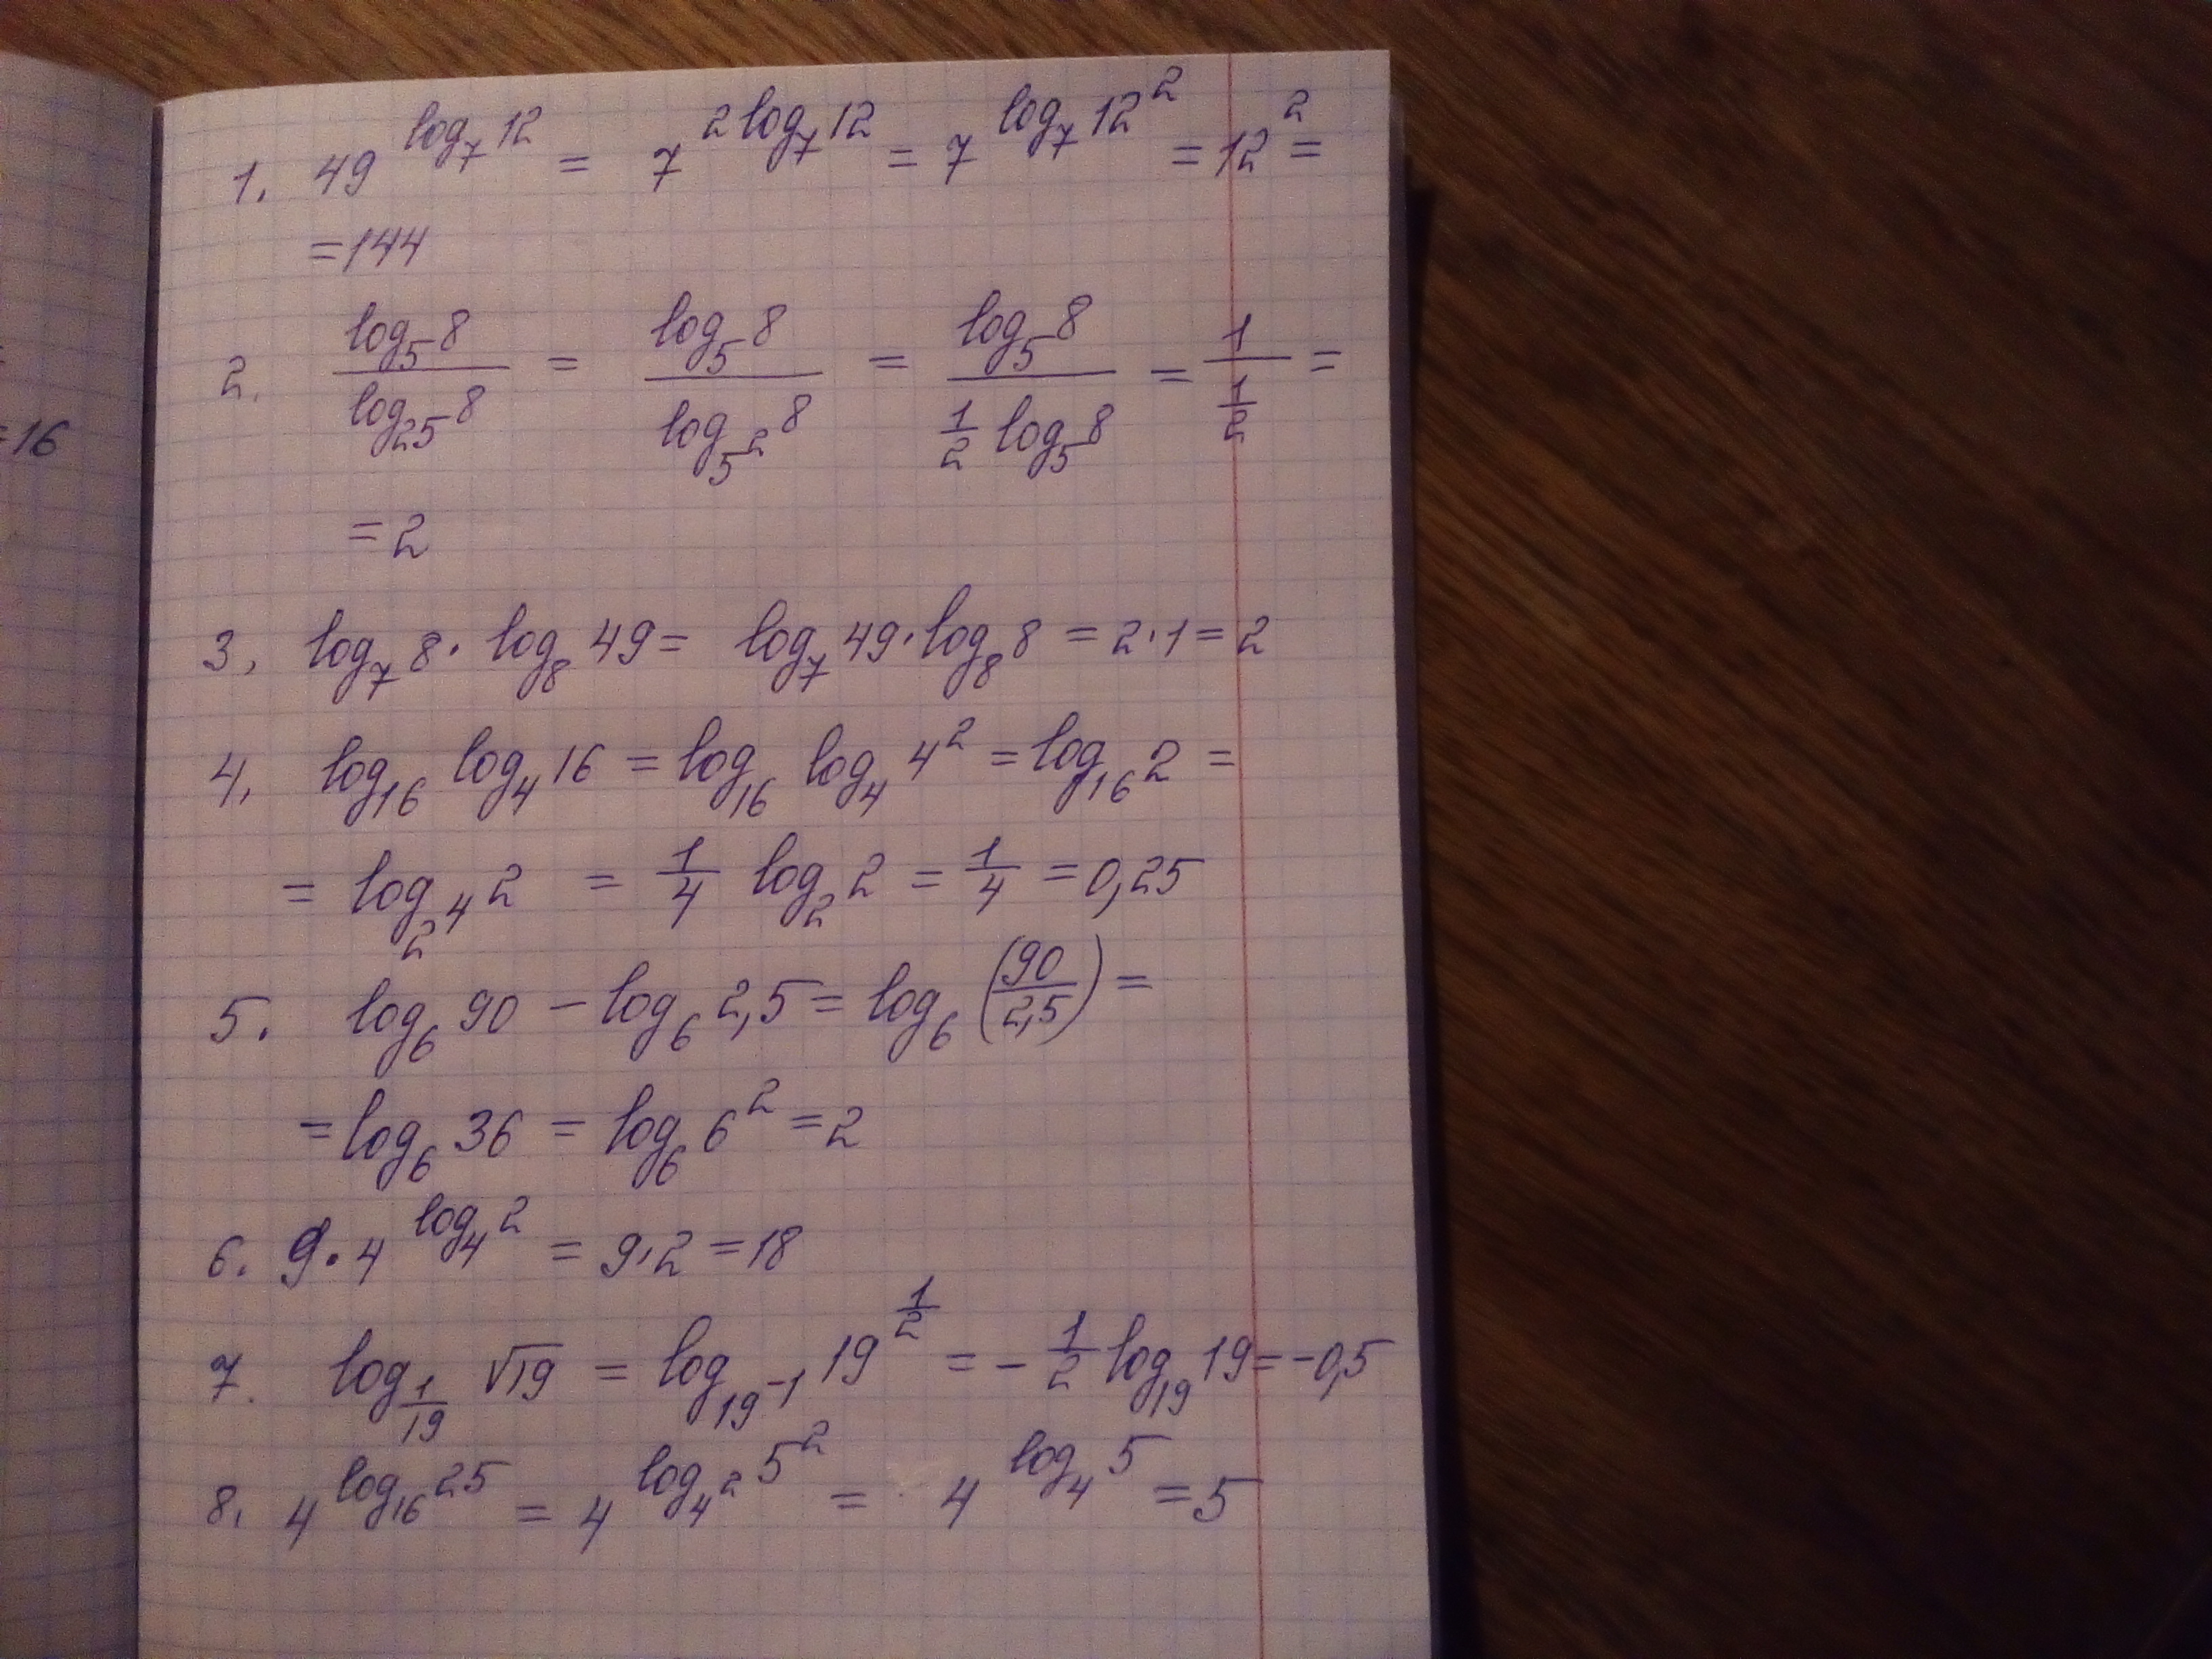 =16
1. 49^(log₇12) = 7^(2log₇12) = 7^(log₇12²) = 12² =
=144
2. log₅8/log₂₅8 = log₅8/log_(5²)8 = log₅8/(1/2 log₅8) = 1/(1/2) =
=2
3. log₇8·log₈49= log₇49·log₈8 = 2·1=2
4. log₁₆ log₄16 = log₁₆ log₄4² = log₁₆2 =
= log_(2⁴)2 = 1/4 log₂2 = 1/4 = 0,25
5. log₆90 – log₆2,5 = log₆(90/2,5) =
= log₆36 = log₆6² = 2
6. 9·4^(log₄2) = 9·2 = 18
7. log_(1/19)√19 = log_(19⁻¹)19^(1/2) = -1/2 log₁₉19 = -0,5
8. 4^(log₁₆25) = 4^(log_(4²)5²) = 4^(log₄5) = 5